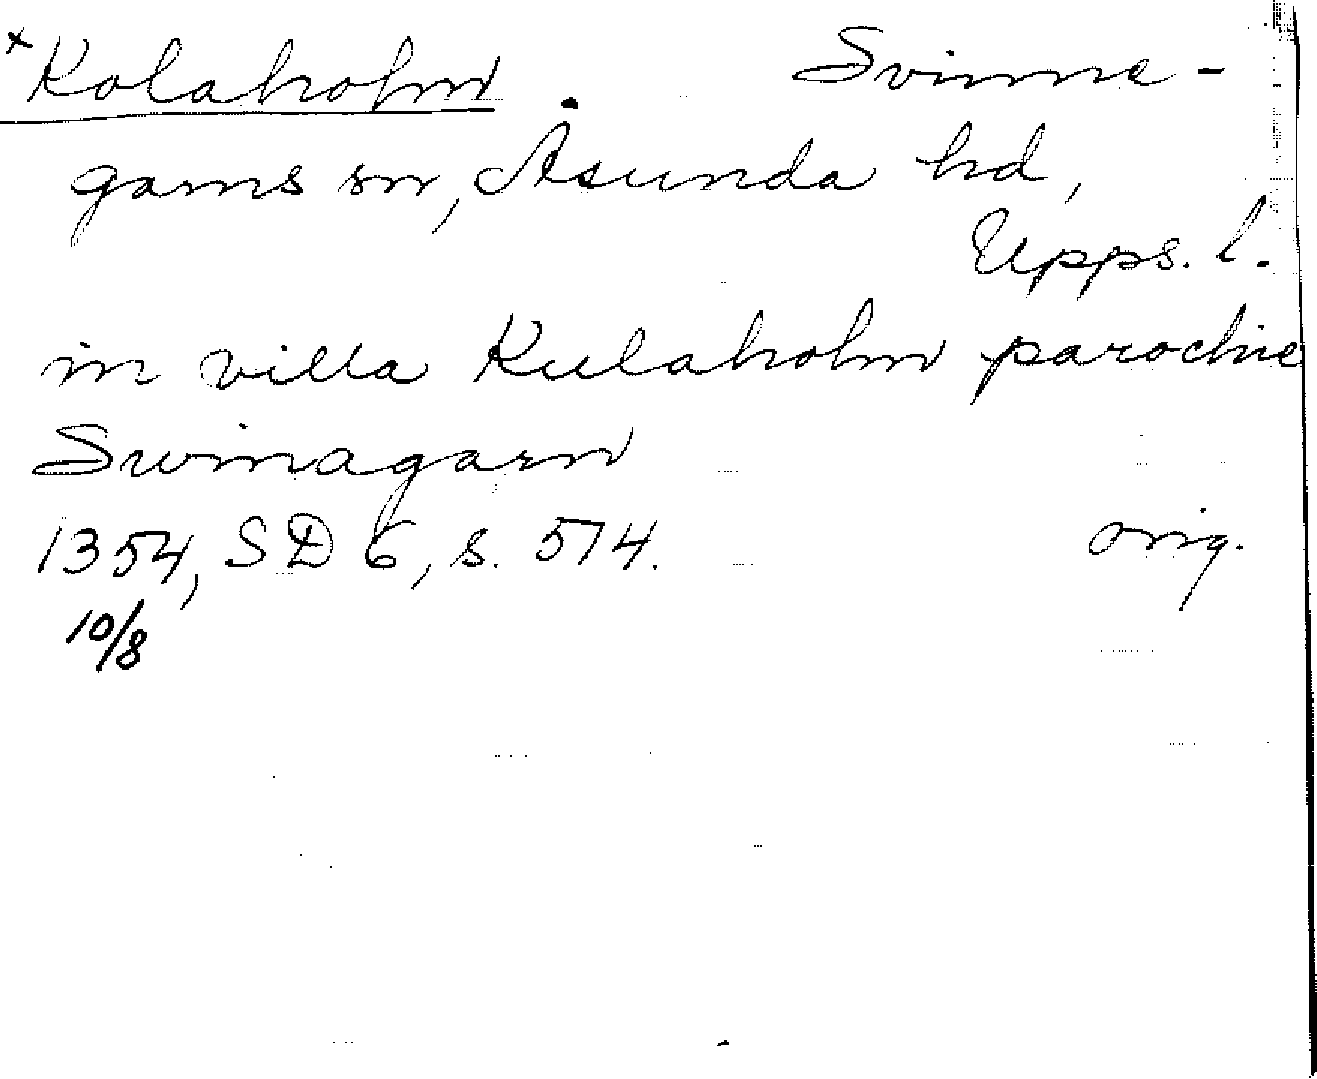 *Kolaholm. Svinne-
garns sn, Åsunda hd,
Upps. l.
in villa Kulaholm parochie
Swinagarn
1354, SD 6, s. 574. orig.
10/8